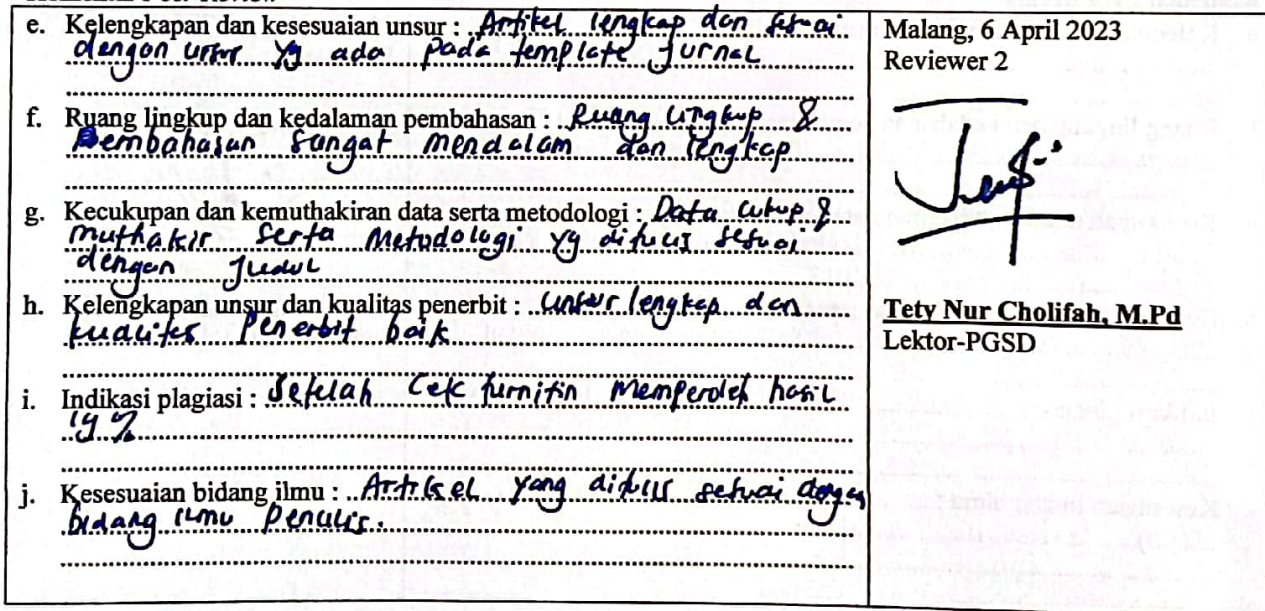 e. Kelengkapan dan kesesuaian unsur : Artikel lengkap dan sesuai
dengan unsur yg ada pada template jurnal
f. Ruang lingkup dan kedalaman pembahasan : Ruang lingkup &
Pembahasan sangat mendalam dan lengkap
g. Kecukupan dan kemuthakiran data serta metodologi : Data cukup &
muthakir serta Metodologi yg ditulis sesuai
dengan judul
h. Kelengkapan unsur dan kualitas penerbit : unsur lengkap dan
kualitas Penerbit baik
i. Indikasi plagiasi : Setelah Cek turnitin Memperoleh hasil
%
j. Kesesuaian bidang ilmu : Artikel yang ditulis sesuai dengan
bidang ilmu Penulis.
Malang, 6 April 2023
Reviewer 2
Tety Nur Cholifah, M.Pd
Lektor-PGSD